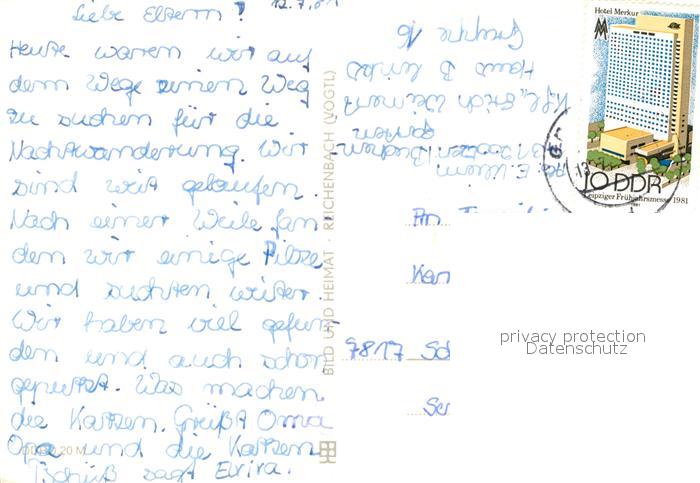 Liebe Eltern! 12.7.81
Heute waren wir auf
dem Wege einen Weg
zu suchen für die
Nachtwanderung. Wir
sind weit gelaufen.
Nach einer Weile fan
den wir einige Pilze
und suchten weiter.
Wir haben viel gefun-
den und auch schon
geputzt. Was machen
die Katzen. Grüßt Oma
Opa und die Katzen
Tschüß sagt Elvira.
20 M
BILD UND HEIMAT · REICHENBACH (VOGTL)
Haus B links
Gruppe 16
Hotel Merkur
M
10 DDR
Leipziger Frühjahrsmesse 1981
An
Kar
7817 Sc
privacy protection
Datenschutz